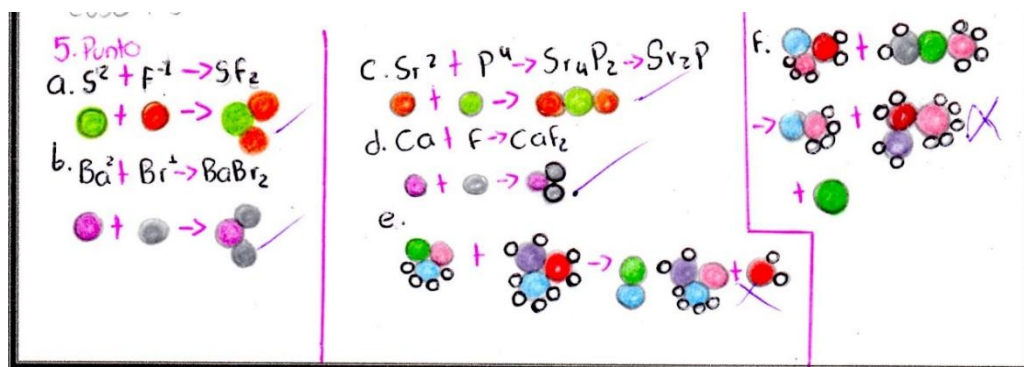 5. Punto
a. S² + F⁻¹ -> SF₂
+ ->
b. Ba² + Br¹ -> BaBr₂
+ ->
c. Sr² + P⁴ -> Sr₄P₂ -> Sr₂P
+ ->
d. Ca + F -> CaF₂
+ ->
e.
+ -> +
f. +
-> +
+